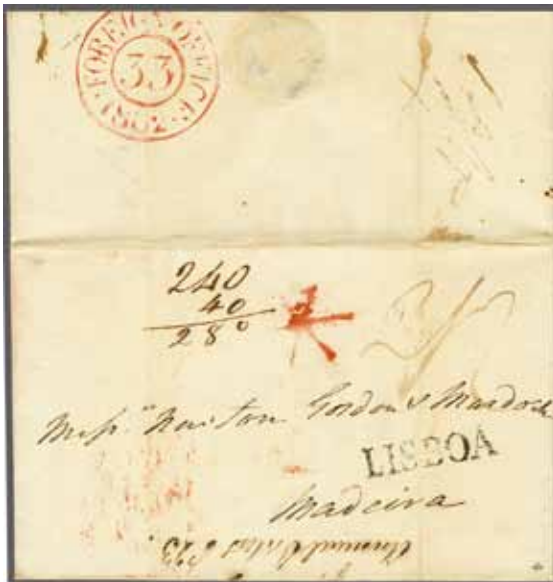 FOREIGN OFFICE
33
1802
240
40
280
Mess.rs Newton Gordon & Murdoch
LISBOA
Madeira